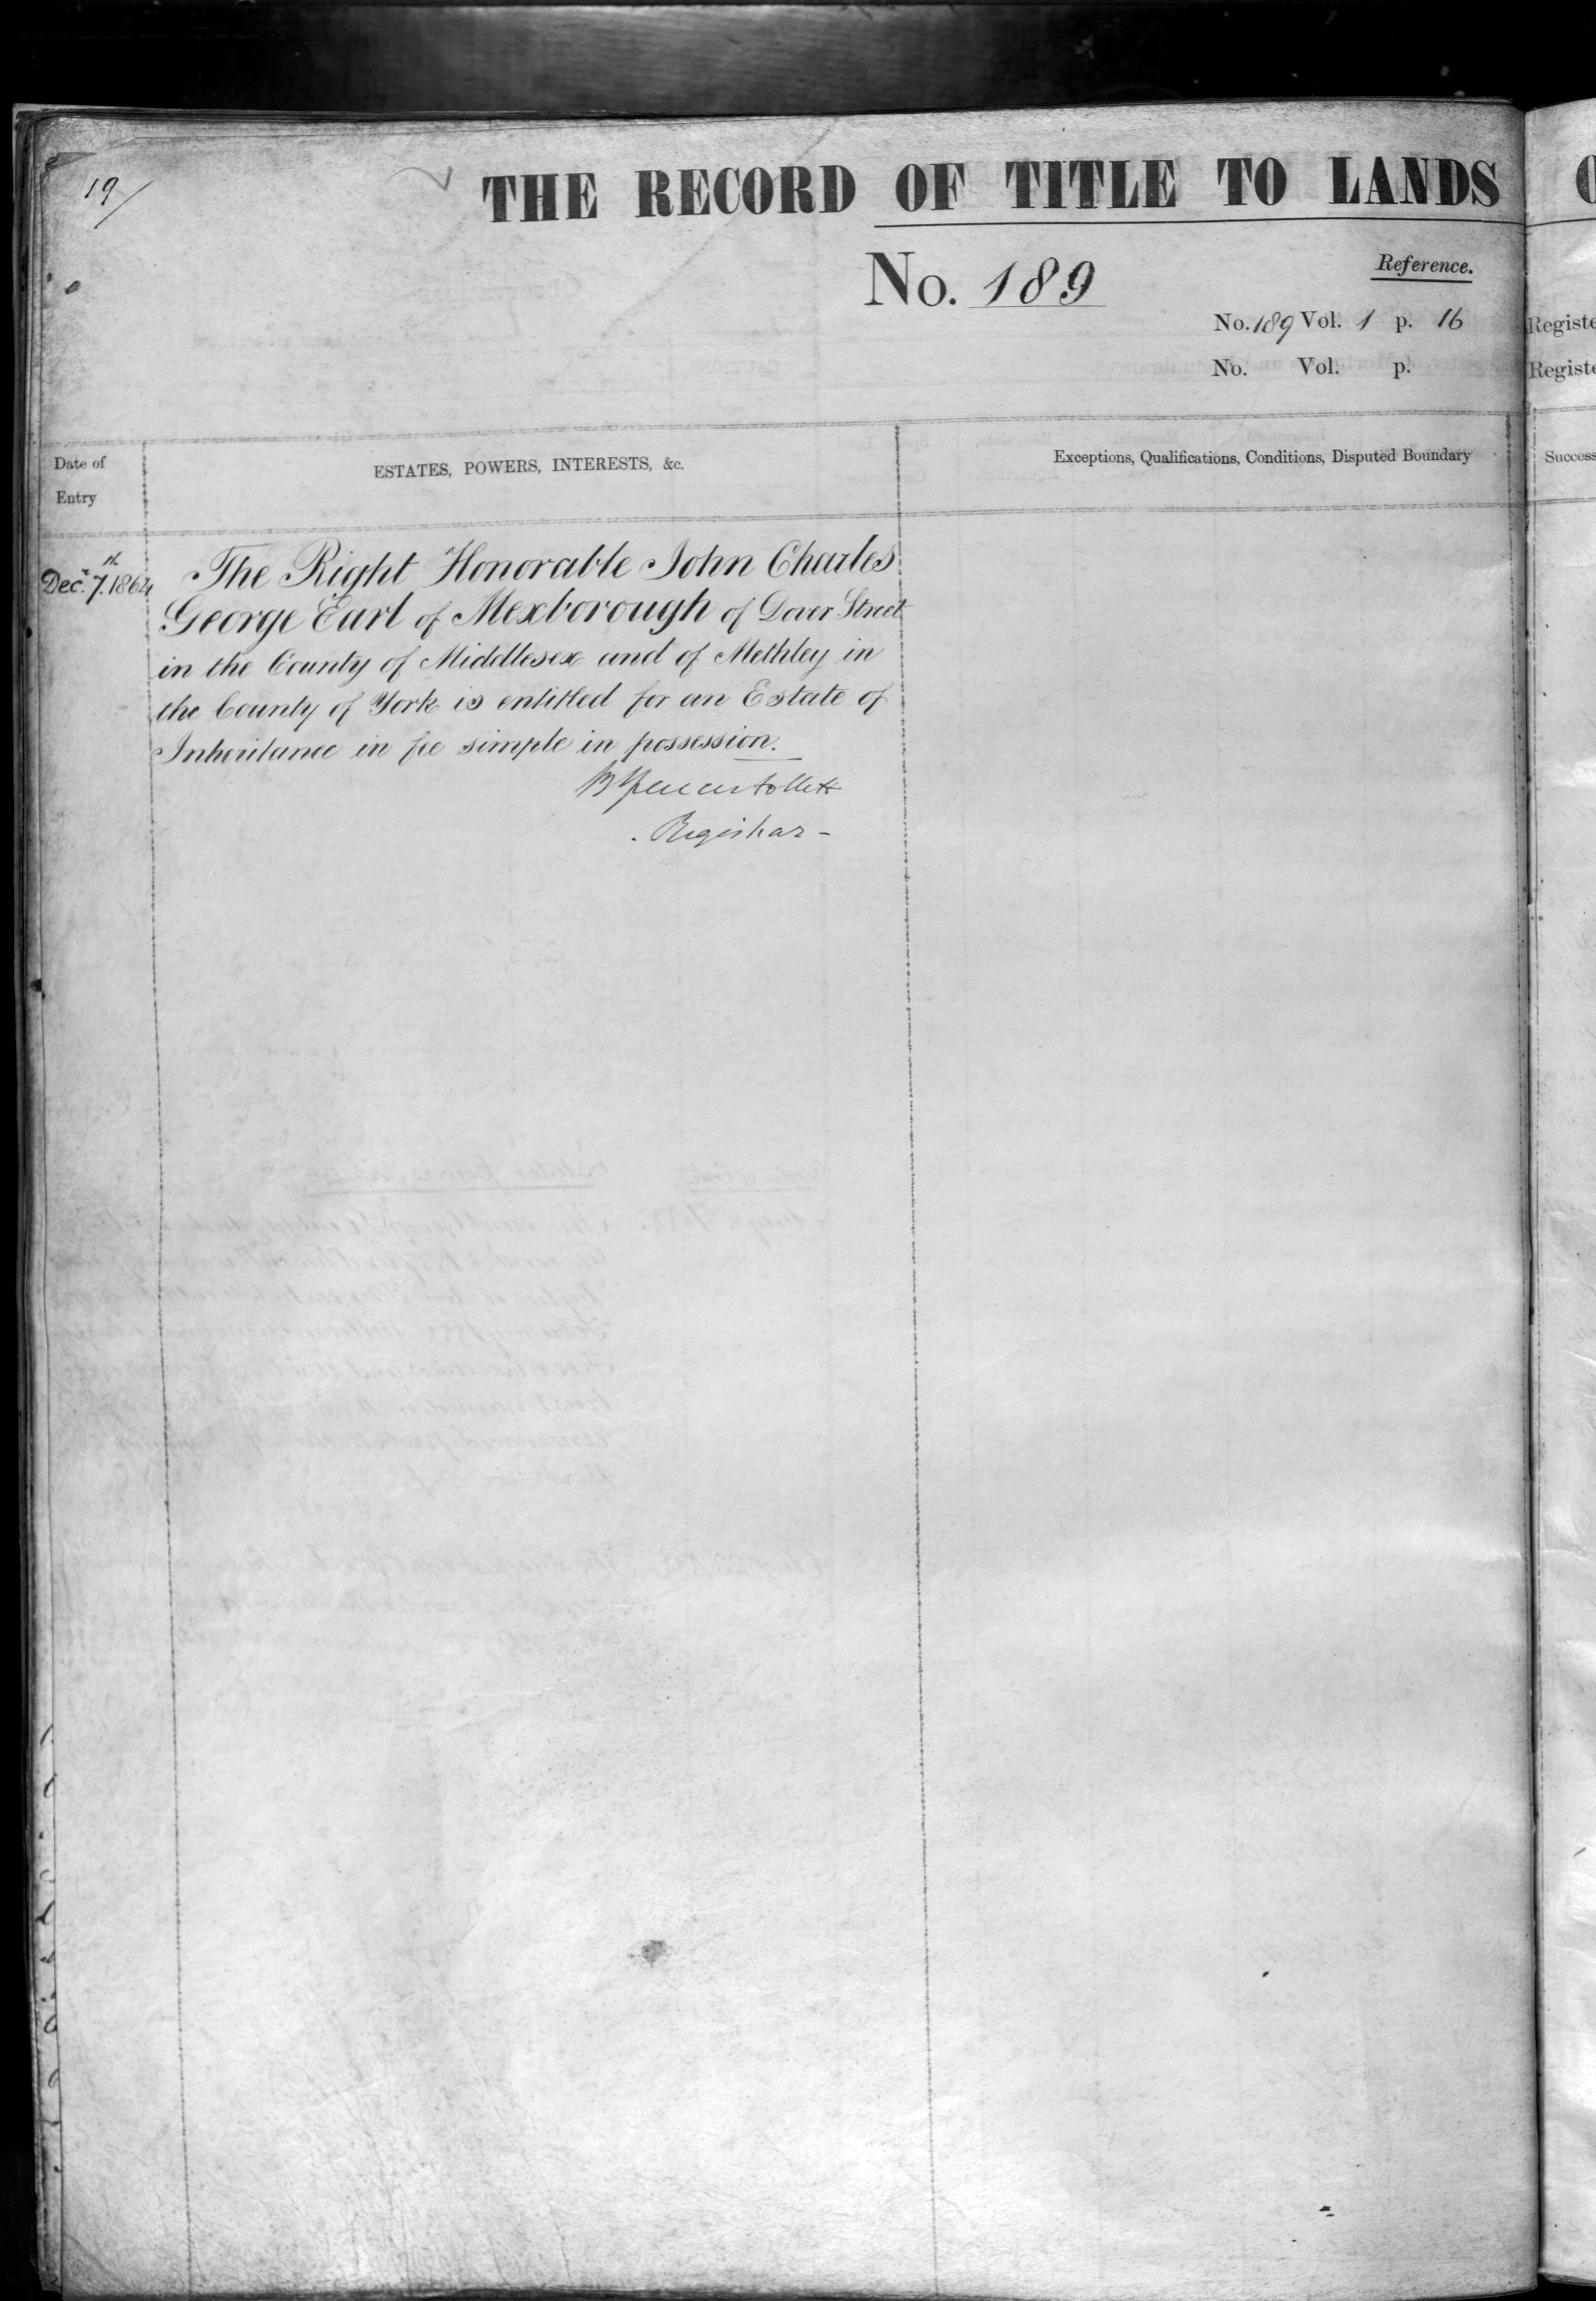 19/
THE RECORD OF TITLE TO LANDS
No. 189
Reference.
No. 189 Vol. 1 p. 16
No. Vol. p.
Date of Entry
ESTATES, POWERS, INTERESTS, &c.
Exceptions, Qualifications, Conditions, Disputed Boundary
Decr. 7th. 1864
The Right Honorable John Charles
George Earl of Mexborough of Dover Street
in the County of Middlesex and of Methley in
the County of York is entitled for an Estate of
Inheritance in fee simple in possession.
B Spencer Follett
Registrar
Registe
Registe
Success